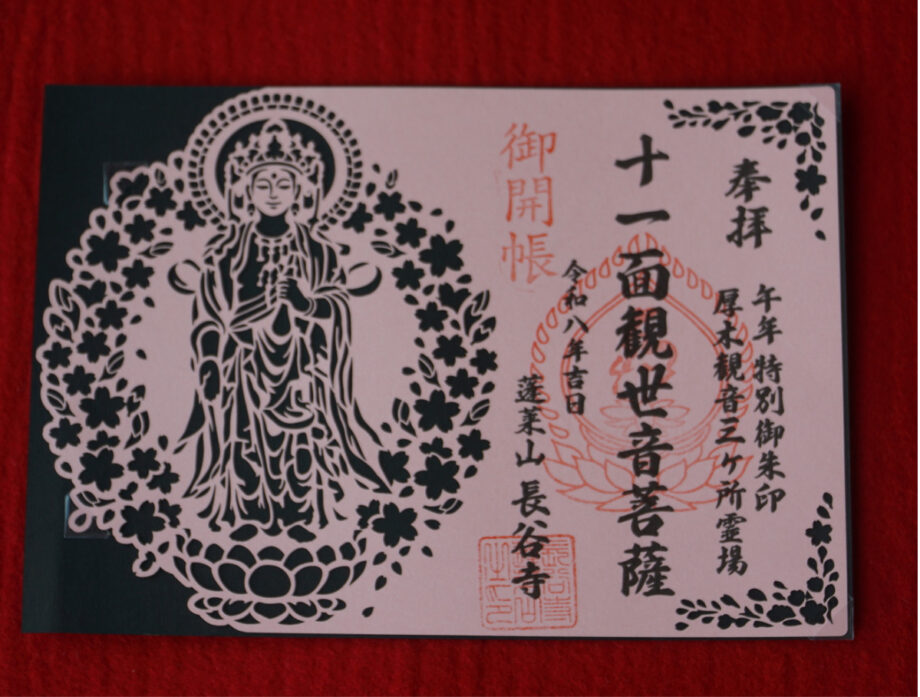 奉拝
午年特別御朱印
厚木観音三ケ所霊場
十一面観世音菩薩
御開帳
令和八年吉日
蓬莱山 長谷寺